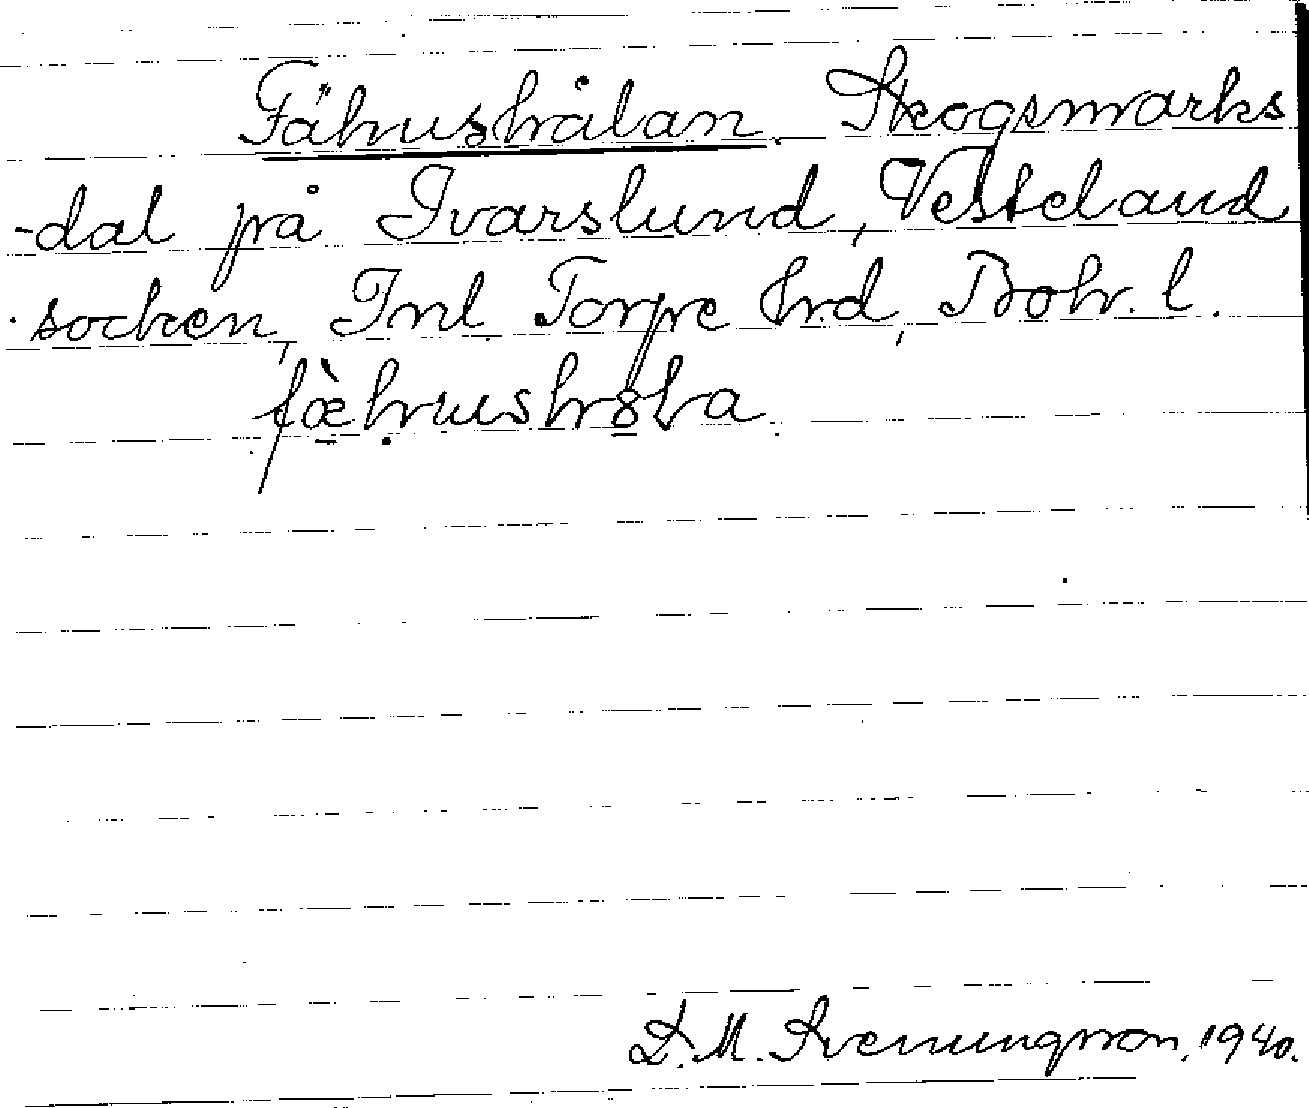 Fähushålan. Skogsmarks
-dal på Ivarslund, Vesteland
socken, Inl Torpe hrd, Bohr. l.
D. M. Svenungsson, 1940.